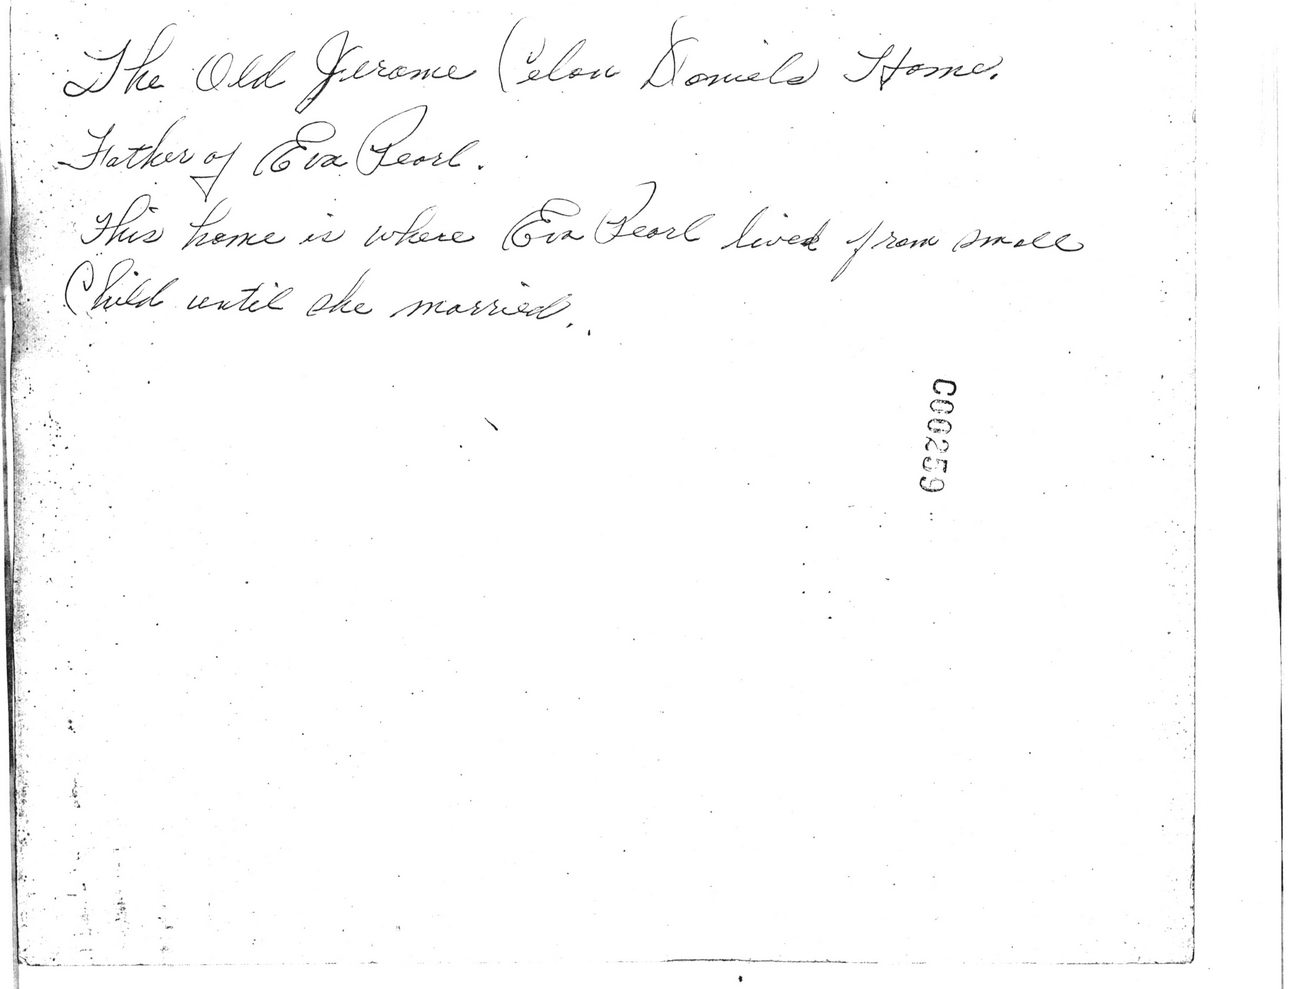 The Old Jerome Celon Daniels Home.
Father of Eva Pearl.
This home is where Eva Pearl lived from small
Child until she married.
C000259